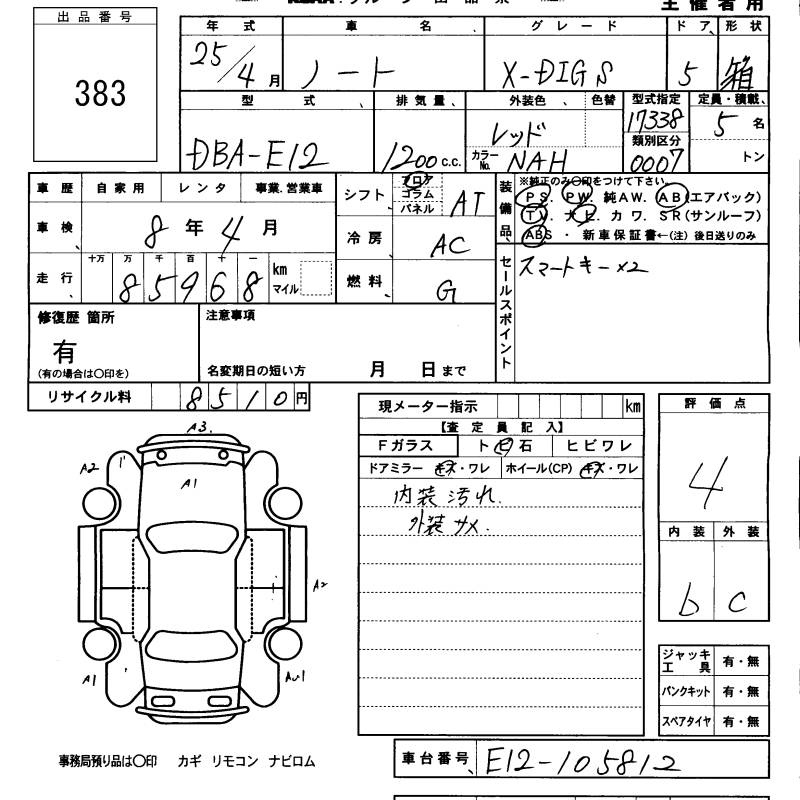 主催者用
出品番号
383
年式 車名 グレード ドア 形状
25/4月 ノート X-DIG S 5 箱
型式 排気量 外装色 色替 型式指定 定員・積載
17338 5名
類別区分
DBA-E12 1200 c.c. レッド カラーNo. NAH 0007 トン
車歴 自家用 レンタ 事業.営業車
シフト フロア コラム パネル AT
装備品 ※純正のみ○印をつけて下さい。
PS. PW. 純AW. AB(エアバック)
TV カワ. SR(サンルーフ)
ABS ・ 新車保証書←(注) 後日送りのみ
車検 8年4月
冷房 AC
走行 十万 万 千 百 十 一
85968 km マイル
燃料 G
セールスポイント スマートキー×2
修復歴 箇所
有
(有の場合は○印を)
注意事項
名変期日の短い方 月 日まで
リサイクル料 8510円
現メーター指示 km
【査定員記入】
Fガラス ト ビ 石 ヒビワレ
ドアミラー キズ・ワレ ホイール(CP) キズ・ワレ
内装 汚れ.
外装 サメ.
評価点
4
内装 外装
b c
A3.
A2
A1
A2
A1
ジャッキ工具 有・無
パンクキット 有・無
スペアタイヤ 有・無
事務局預り品は○印 カギ リモコン ナビロム
車台番号 E12-105812